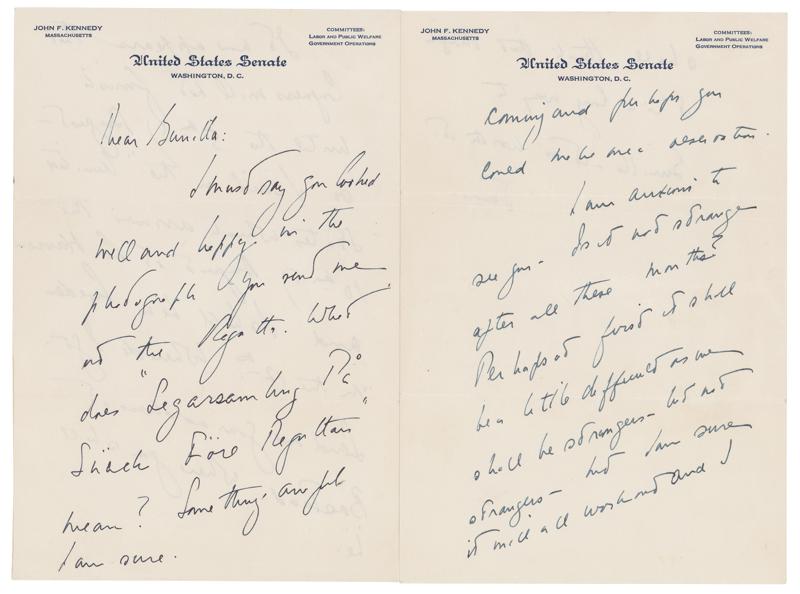 JOHN F. KENNEDY
MASSACHUSETTS
COMMITTEES:
LABOR AND PUBLIC WELFARE
GOVERNMENT OPERATIONS
United States Senate
WASHINGTON, D. C.
Dear Gunilla:
I must say you looked
well and happy in the
photograph you send me
at the Regatta. What
does "Segarsamling På
Snäck Före Regattan"
mean? Something awful
I am sure.
JOHN F. KENNEDY
MASSACHUSETTS
COMMITTEES:
LABOR AND PUBLIC WELFARE
GOVERNMENT OPERATIONS
United States Senate
WASHINGTON, D. C.
coming and perhaps you
could make me a reservation.
I am anxious to
see you - Is it not strange
after all these months?
Perhaps at first it shall
be a little difficult as we
shall be strangers - but not
strangers - but I am sure
it will all work out and I